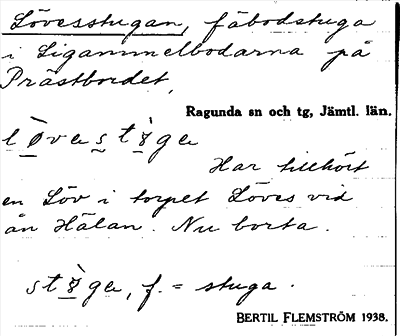 Lövesstugan, fäbodstuga
i Sigammelbodarna på
Prästbordet,
Ragunda sn och tg, Jämtl. län.
Har tillhört
en Löv i torpet Löves vid
ån Hälan. Nu borta.
f. = stuga.
BERTIL FLEMSTRÖM 1938.